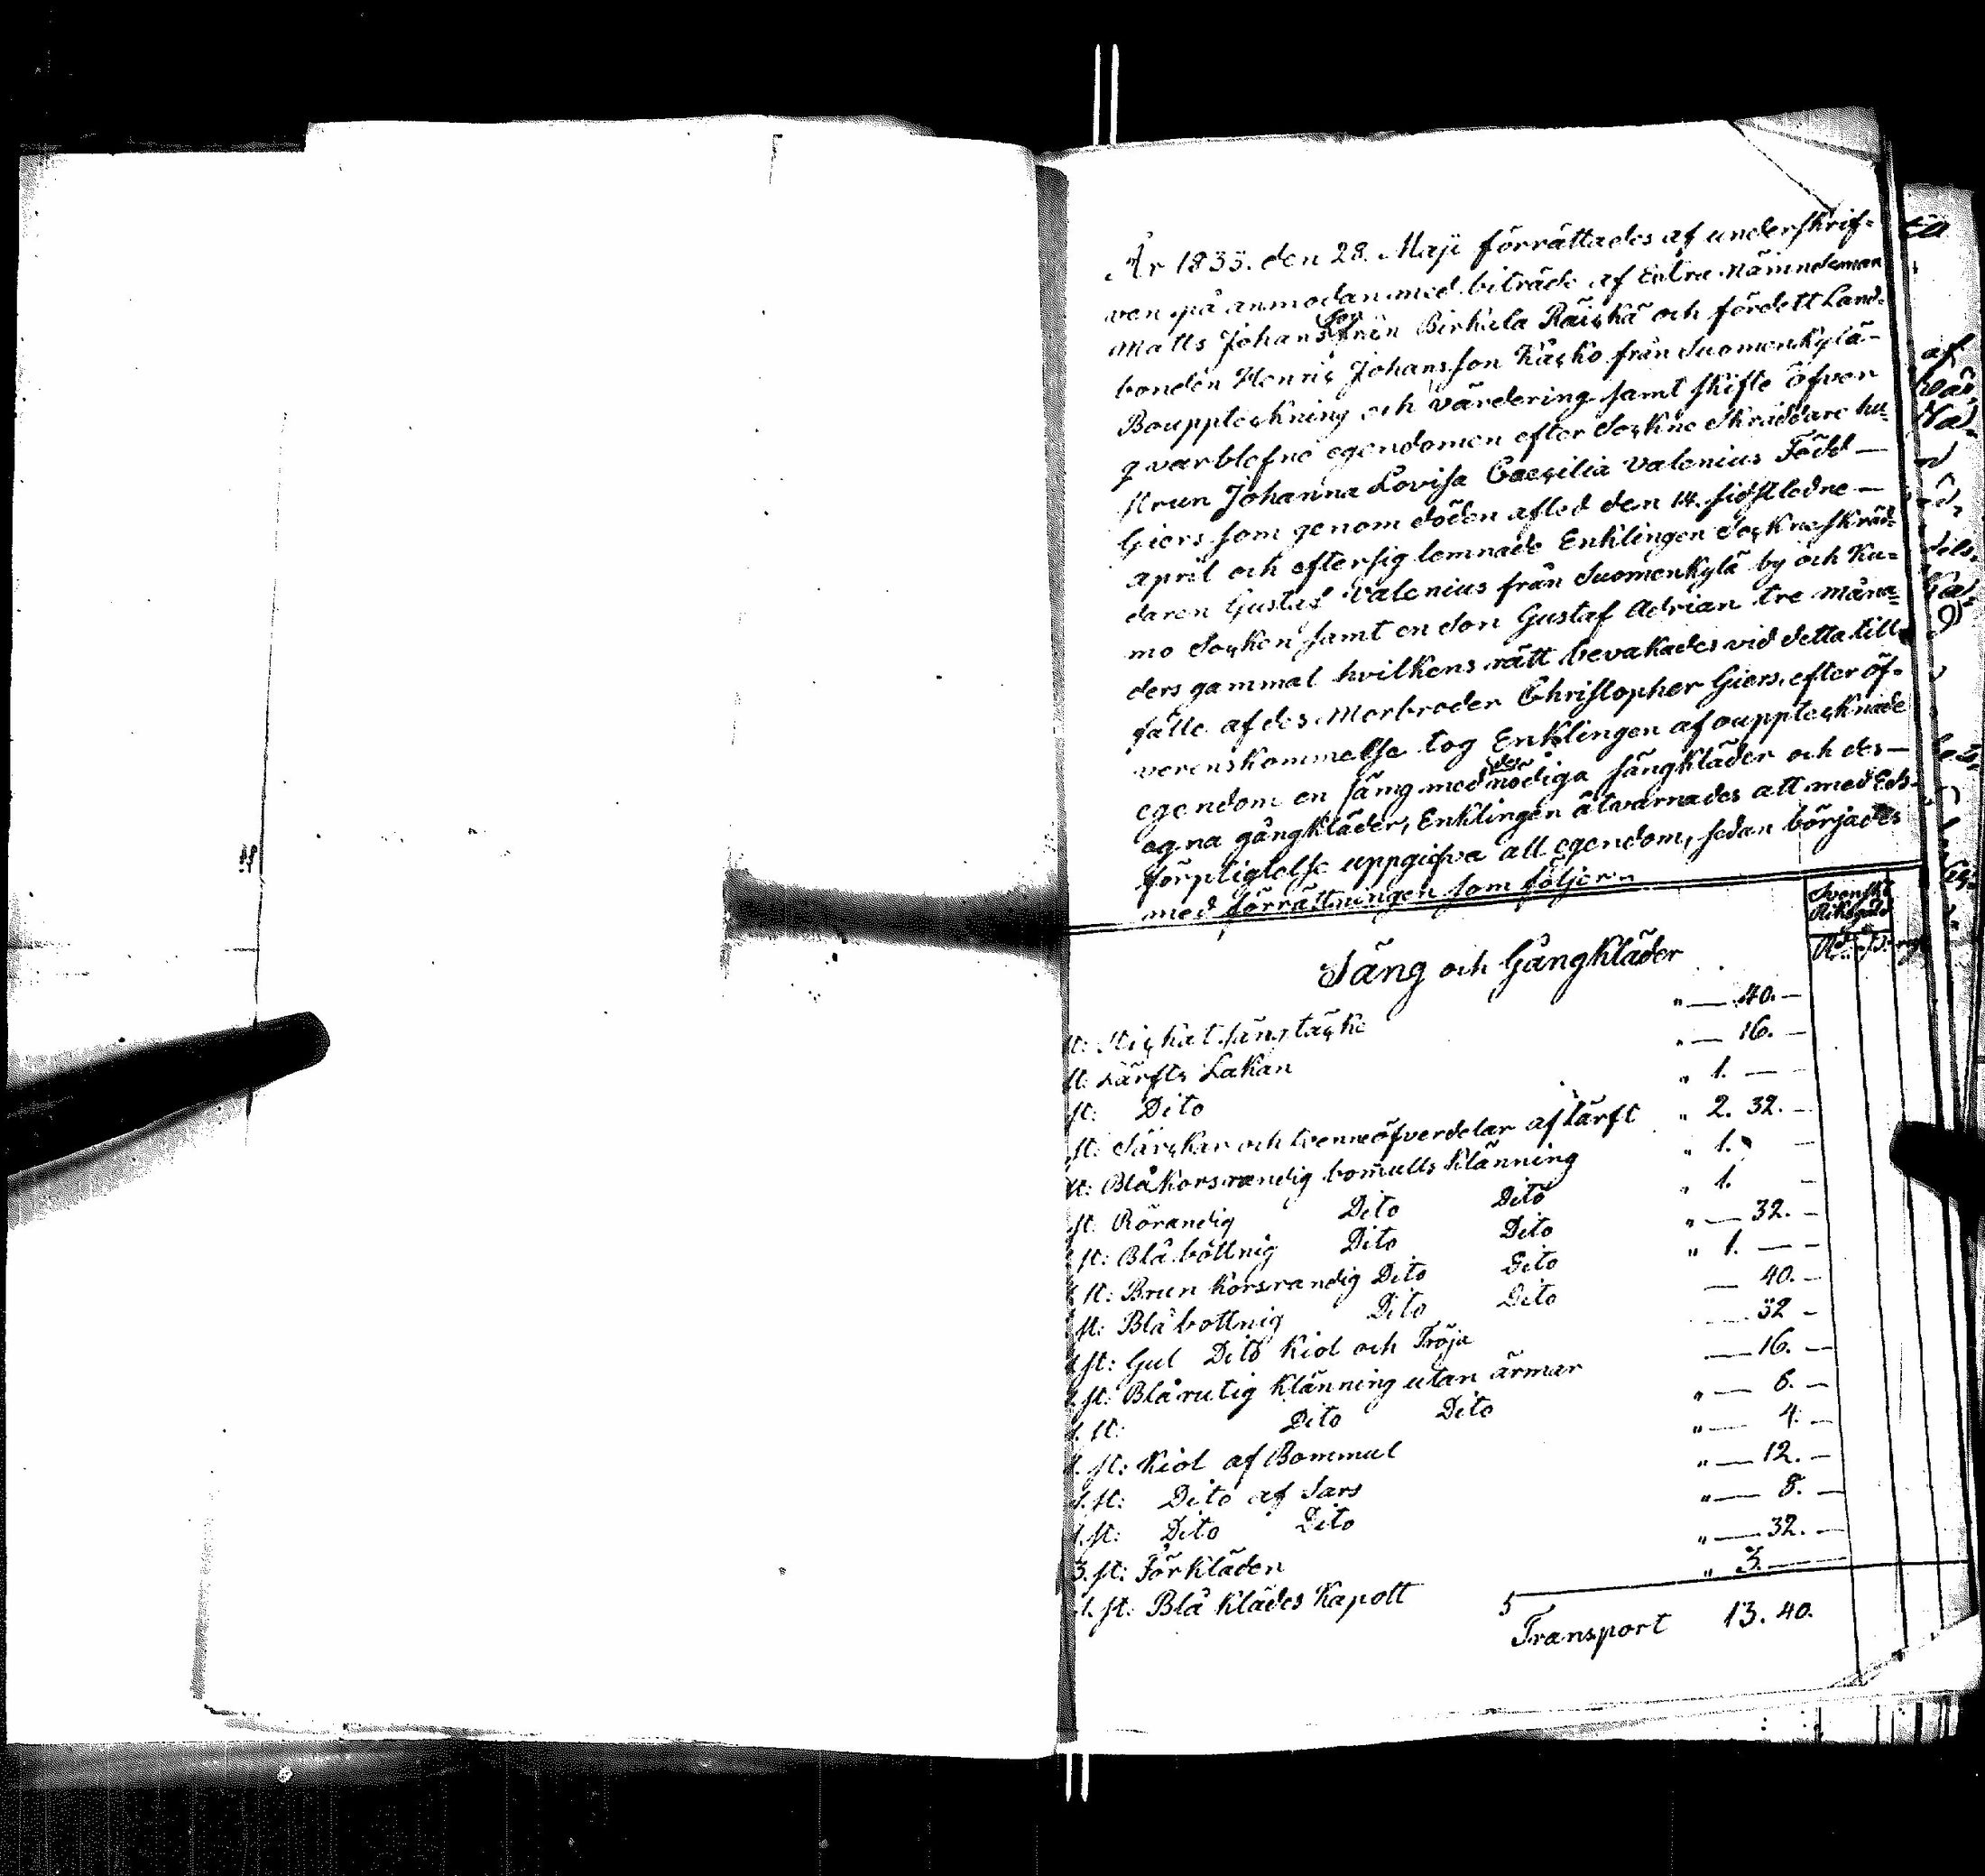 År 1833. den 28. Maji förrättades af underskrif-
ven på anmodan med biträde af Extra Nämndeman
Matts Johansson från Birkala Räickä och fördett Land-
bonden Henric Johansson Kåcko från Suomenkylä-
Bouppteckning och värdering samt skifte öfver
qvarblefne egendomen efter Sockne Skräddare hu-
strun Johanna Lovisa Caecilia Valenius Född —
Giers som genom döden afled den 14. sidstledne —
april och eftersig lemnade Enklingen Sockneskräd-
daren Gustaf Valenius från Suomenkylä by och Ku-
mo Socken samt en Son Gustaf Adrian tre måna-
ders gammal hvilkens rätt bevakades vid detta till-
fälle af des Morbroder Christopher Giers, efter öf-
verenskommelse tog Enklingen af oupptecknade
egendom en säng med des nödiga sängkläder och des —
egna gångkläder, Enklingen åtvarnades att med Eds-
förpligtelse uppgifva all egendom, sedan börjades
med förrättningen som följer
Svenskt
Riksgäld
Rd
Säng och Gångkläder
st: Stickat sängtäcke " — 40. —
st: Lärfts Lakan " — 16. —
st: Dito " 1. —
st: Särckar och tvenne öfverdelar af Lärft " 2. 32. —
st: Blåkorsrandig bomulls Klänning " 1. —
st: Rörandig Dito Dito " 1. —
st: Blåbottnig Dito Dito " — 32. —
1 st: Brun Korsrandig Dito Dito " 1. — —
st: Blåbottnig Dito Dito — 40. —
1 st: Gul Dito Kiol och Tröja — 32 —
1 st: Blårutig Klänning utan ärmar — 16. —
1. st: Dito Dito " — 6. —
1. st: Kiol af Bommul " — 4. —
1. st: Dito af Sars " — 12. —
1. st: Dito Dito " — 8. —
3. st: Förkläden " — 32. —
1. st: Blå Klädes Kapott " 3. —
Transport 13. 40.